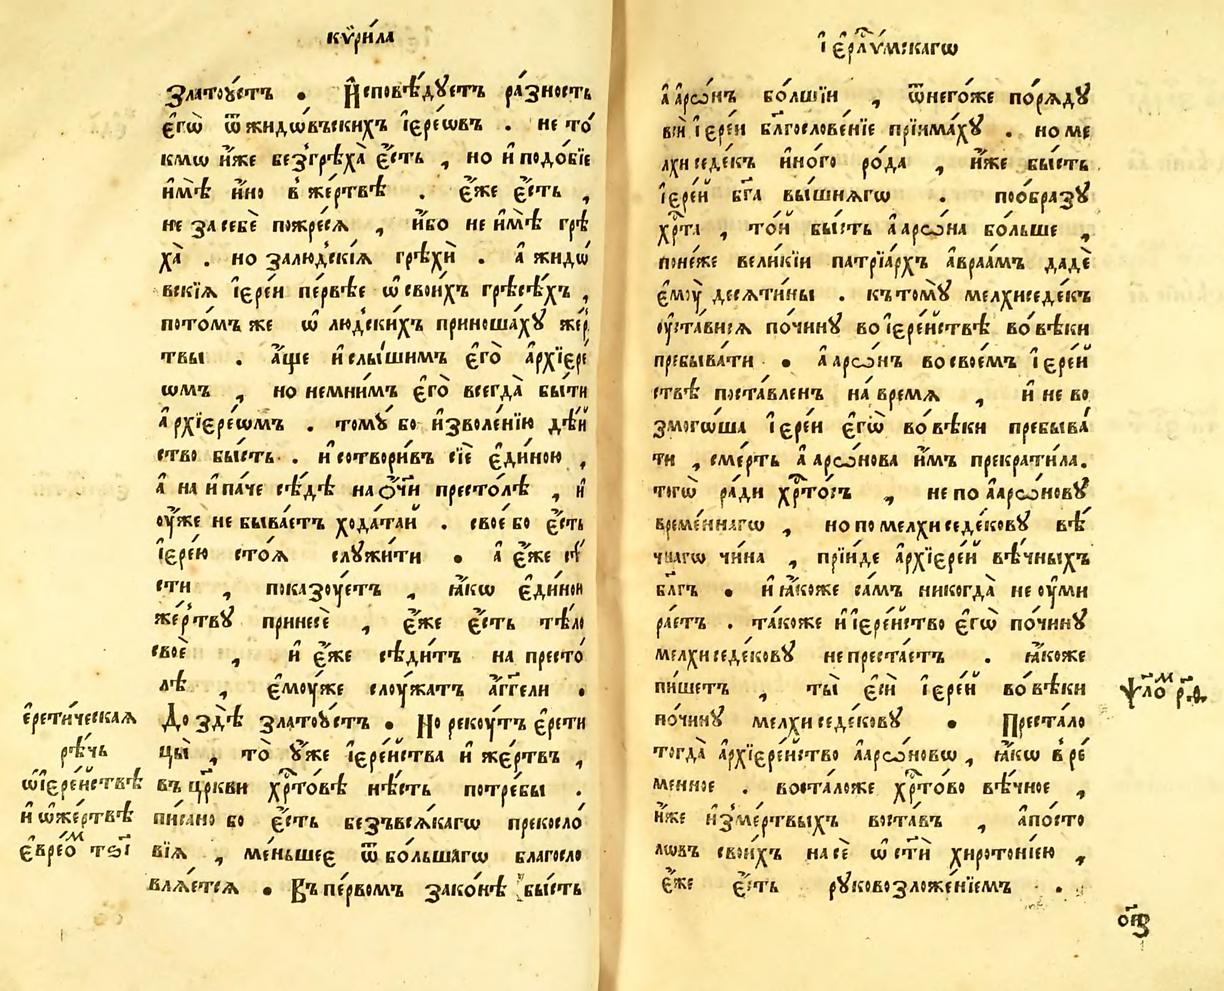 кѷри́ла
златоꙋ́стъ • И҆сповѣ́дꙋетъ ра́зность
є҆гѡ̀ ѿ жидѡ́въскихъ і҆ере́ѡвъ . не то́
кмѡ и҆́же без̾грѣха̀ є҆́сть , но и҆ подо́бїе
и҆мѣ̀ и҆́но в̾ же́ртвѣ . є҆́же є҆́сть ,
не за себѐ пожре́сѧ , и҆́бо не и҆мѣ̀ грѣ
ха̀ . но за людскі́ѧ грѣхѝ . а҆ жидѡ́
вскїѧ і҆ере́и пе́рвѣе ѡ҆ свои́хъ грѣсѣ́хъ ,
пото́мъ же ѡ҆ людски́хъ приноша́хꙋ же́р
твы . а҆́ще и҆ слы́шимъ є҆го̀ а҆рхїере́
ѡмъ , но не мни́мъ є҆го̀ всегда̀ бы́ти
а҆рхїере́ѡмъ . томꙋ́ бо и҆зволе́нїю дѣ́й
ство бы́сть . и҆ сотвори́въ сїѐ є҆ди́ною ,
а҆ на и҆па́че сѣ́де на ѻ҆́чїи престо́лѣ , и҆
оу҆же не быва́етъ хода́тай . свое́ бо є҆́сть
і҆ере́ю стоѧ̀ слꙋжи́ти • а҆ є҆́же сѣ́
сти , показꙋ́етъ , ꙗ҆́кѡ є҆ди́нои
же́ртвꙋ принесѐ , є҆́же є҆́сть тѣ́ло
своѐ , и҆ є҆́же сѣди́тъ на престо́
лѣ , є҆мꙋ́же слꙋ́жатъ а҆́гг҃ели .
До здѣ̀ златоꙋ́стъ • Но рекꙋ́тъ є҆рети
цы̀ , то̀ ᲂу҆же і҆ере́йства и҆ же́ртвъ ,
въ цр҃кви хрⷭ҇то́вѣ нѣ́сть потре́бы .
пи́сано бо є҆́сть безъвсѧ́кагѡ прекосло́
вїѧ , ме́ньшеє ѿ бо́льшагѡ благосло
влѧ́етсѧ • Въ пе́рвомъ зако́нѣ бы́сть
є҆рети́ческаѧ
рѣ́чь
ѡ҆ і҆ере́йствѣ
и҆ ѡ҆ же́ртвѣ
є҆вре́ѡⷨ
і҆ єрⷭ҇ли́мскагѡ
а҆арѡ́нъ бо́лшїи , ѿнего́же поря́дꙋ
всѝ і҆ере́и бл҃гослове́нїе прїима́хꙋ . но ме
лхиседе́къ и҆но́го ро́да , и҆́же бы́сть
і҆ере́й бг҃а вы́шнѧгѡ . поо́бразꙋ
хрⷭ҇та̀ , то́й бы́сть а҆арѡ́на бо́льше ,
поне́же вели́кїи патрїа́рхъ а҆враа́мъ дадѐ
є҆мꙋ̀ десѧти́ны . къ томꙋ̀ мелхиседе́къ
оу҆ста́висѧ по чи́нꙋ во і҆ере́йствѣ во вѣ́ки
пребыва́ти • а҆арѡ́нъ во свое́мъ і҆ере́й
ствѣ поста́вленъ на́ времѧ , и҆ не во
змого́ша і҆ере́и є҆гѡ̀ во вѣ́ки пребыва́
ти , сме́рть а҆арѡ́нова и҆̀мъ прекрати́ла.
тогѡ̀ ра́ди хрⷭ҇то́съ , не по а҆арѡ́новꙋ
вре́меннагѡ , но по мелхиседе́ковꙋ вѣ́
чнагѡ чи́на , прїи́де а҆рхїере́й вѣ́чныхъ
бл҃гъ • и҆ ꙗ҆́коже са́мъ никогда̀ не оу҆ми
ра́етъ . та́коже и҆ і҆ере́йство є҆гѡ̀ по чи́нꙋ
мелхиседе́ковꙋ не преста́етъ . ꙗ҆́коже
пи́шетъ , ты̀ є҆сѝ і҆ере́й во вѣ́ки
по чи́нꙋ мелхиседе́ковꙋ • Преста́ло
тогда̀ а҆рхїере́йство а҆арѡ́новѡ , ꙗ҆́кѡ вре́
менное . воста́ложе хрⷭ҇то́во вѣ́чное ,
и҆́же и҆з̾ ме́ртвыхъ воста́въ , а҆по́сто
лѡвъ свои́хъ на сѐ ѡ҆ст҃ѝ хирото́нїею ,
є҆́же є҆́сть рꙋковозложе́нїемъ .
ѱало́ⷨ р҃ѳ.
о҃з